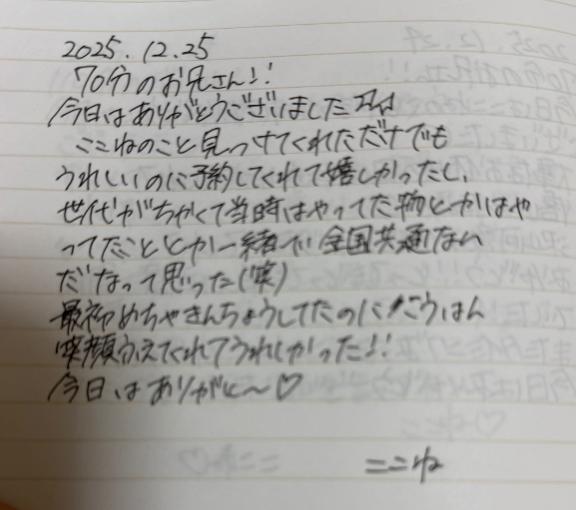 2025.12.25
70分のお兄さん!!
今日はありがとうございました
ここねのこと見つけてくれただけでも
うれしいのに予約してくれて嬉しかったし、
世代がちかくて当時はやってた物とかはや
ってたこととか一緒で全国共通なん
だなって思った(笑)
最初めちゃきんちょうしてたのにこうはん
笑顔ふえてくれてうれしかった!!
今日はありがと〜♡
ここね